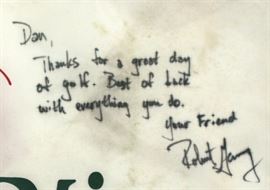 Dan,
Thanks for a great day
of golf. Best of Luck
with everything you do.
Your Friend
Robert